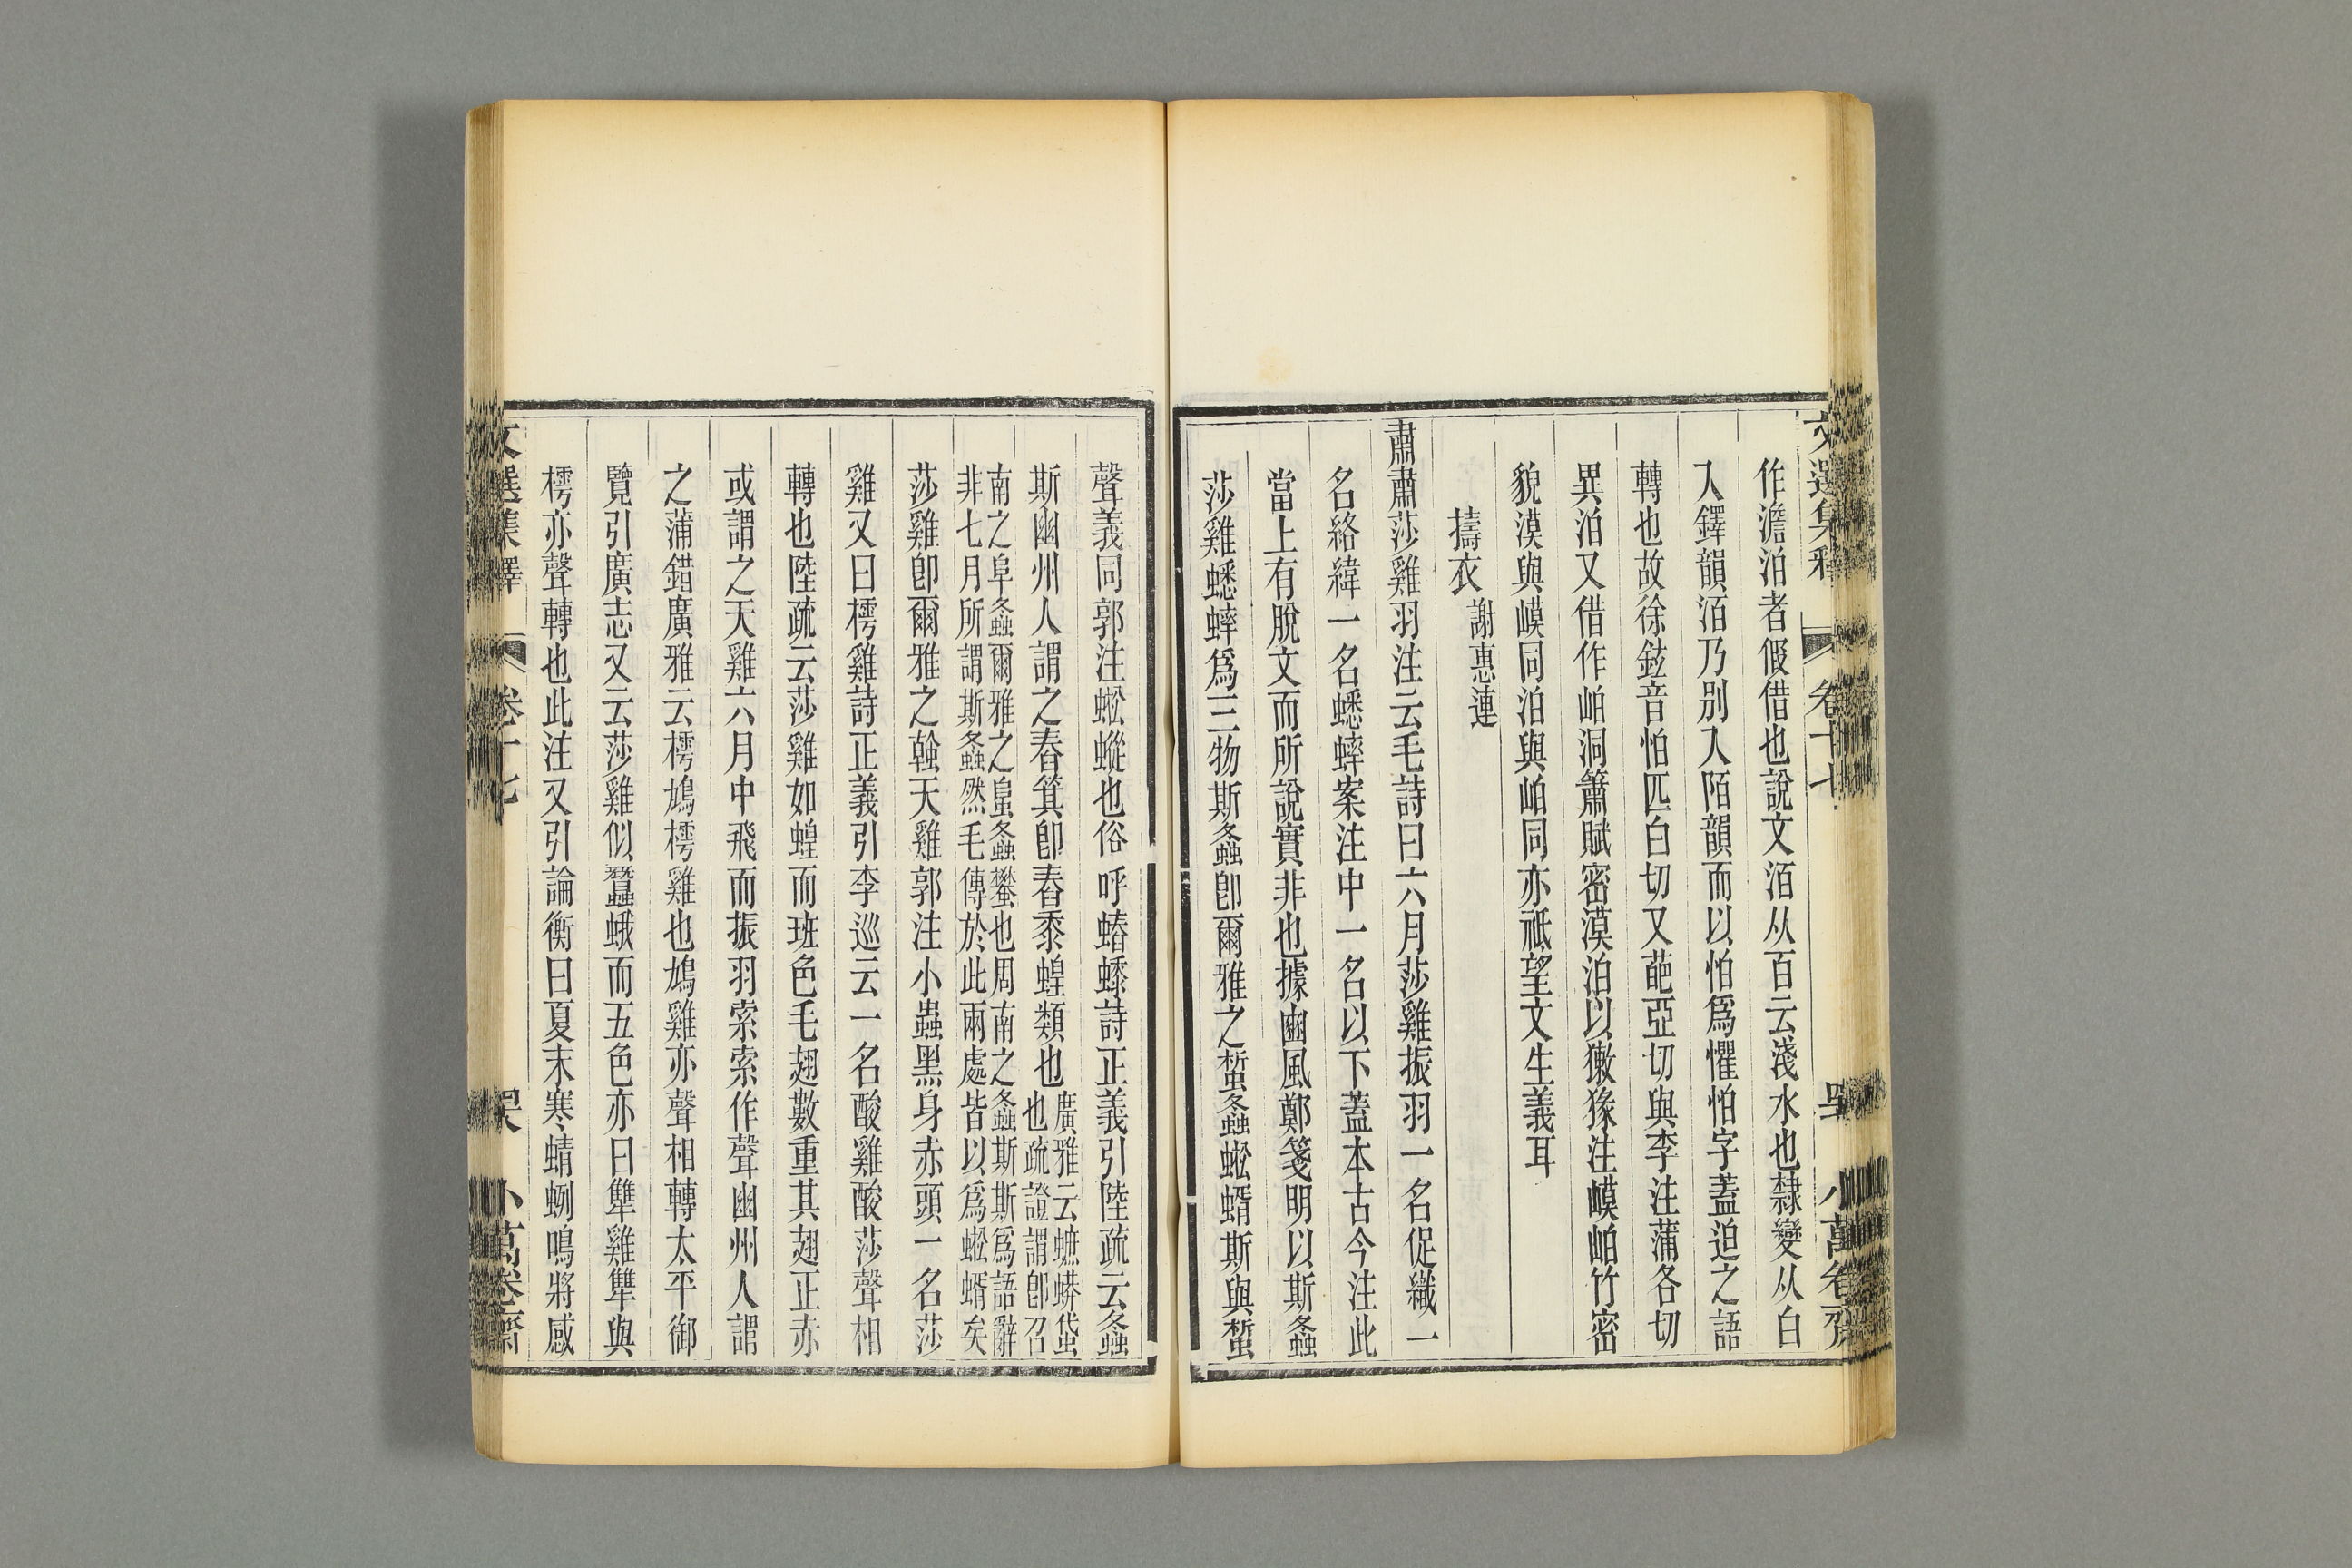 作澹泊者假借也說文洦从百云淺水也隸變从白
入鐸韻洦乃别入陌韻而以怕爲懼怕字蓋迫之語
轉也故徐鉉音怕匹白切又葩亞切與李注蒲各切
異泊又借作岶洞簫賦密漠泊以獥猭注嶼岶竹密
貌漠與嶼同泊與岶同亦祗望文生義耳
擣衣 謝惠連
肅肅莎雞羽注云毛詩曰六月莎雞振羽一名促織一
名絡緯一名蟋蟀案注中一名以下蓋本古今注此
當上有脫文而所說實非也據豳風鄭箋明以斯螽
莎雞蟋蟀爲三物斯螽卽爾雅之蜤螽蜙蝑斯與蜤
聲義同郭注蜙䗥也俗呼蝽𧐱詩正義引陸疏云螽
斯幽州人謂之舂箕卽舂黍蝗類也廣雅云䗪蟒䖠
也疏證謂卽召
南之阜螽爾雅之𧒂螽蠜也周南之螽斯斯爲語辭
非七月所謂斯螽然毛傳於此兩處皆以爲蜙蝑矣
莎雞卽爾雅之螒天雞郭注小蟲黑身赤頭一名莎
雞又曰樗雞詩正義引李巡云一名酸雞酸莎聲相
轉也陸疏云莎雞如蝗而班色毛翅數重其翅正赤
或謂之天雞六月中飛而振羽索索作聲幽州人謂
之蒲錯廣雅云樗鳩樗雞也鳩雞亦聲相轉太平御
覽引廣志又云莎雞似蠶蛾而五色亦曰犨雞犨與
樗亦聲轉也此注又引論衡曰夏末寒蜻蛚鳴將感
文選集釋 卷十七 小萬卷齋
文選集釋 卷十七 小萬卷齋